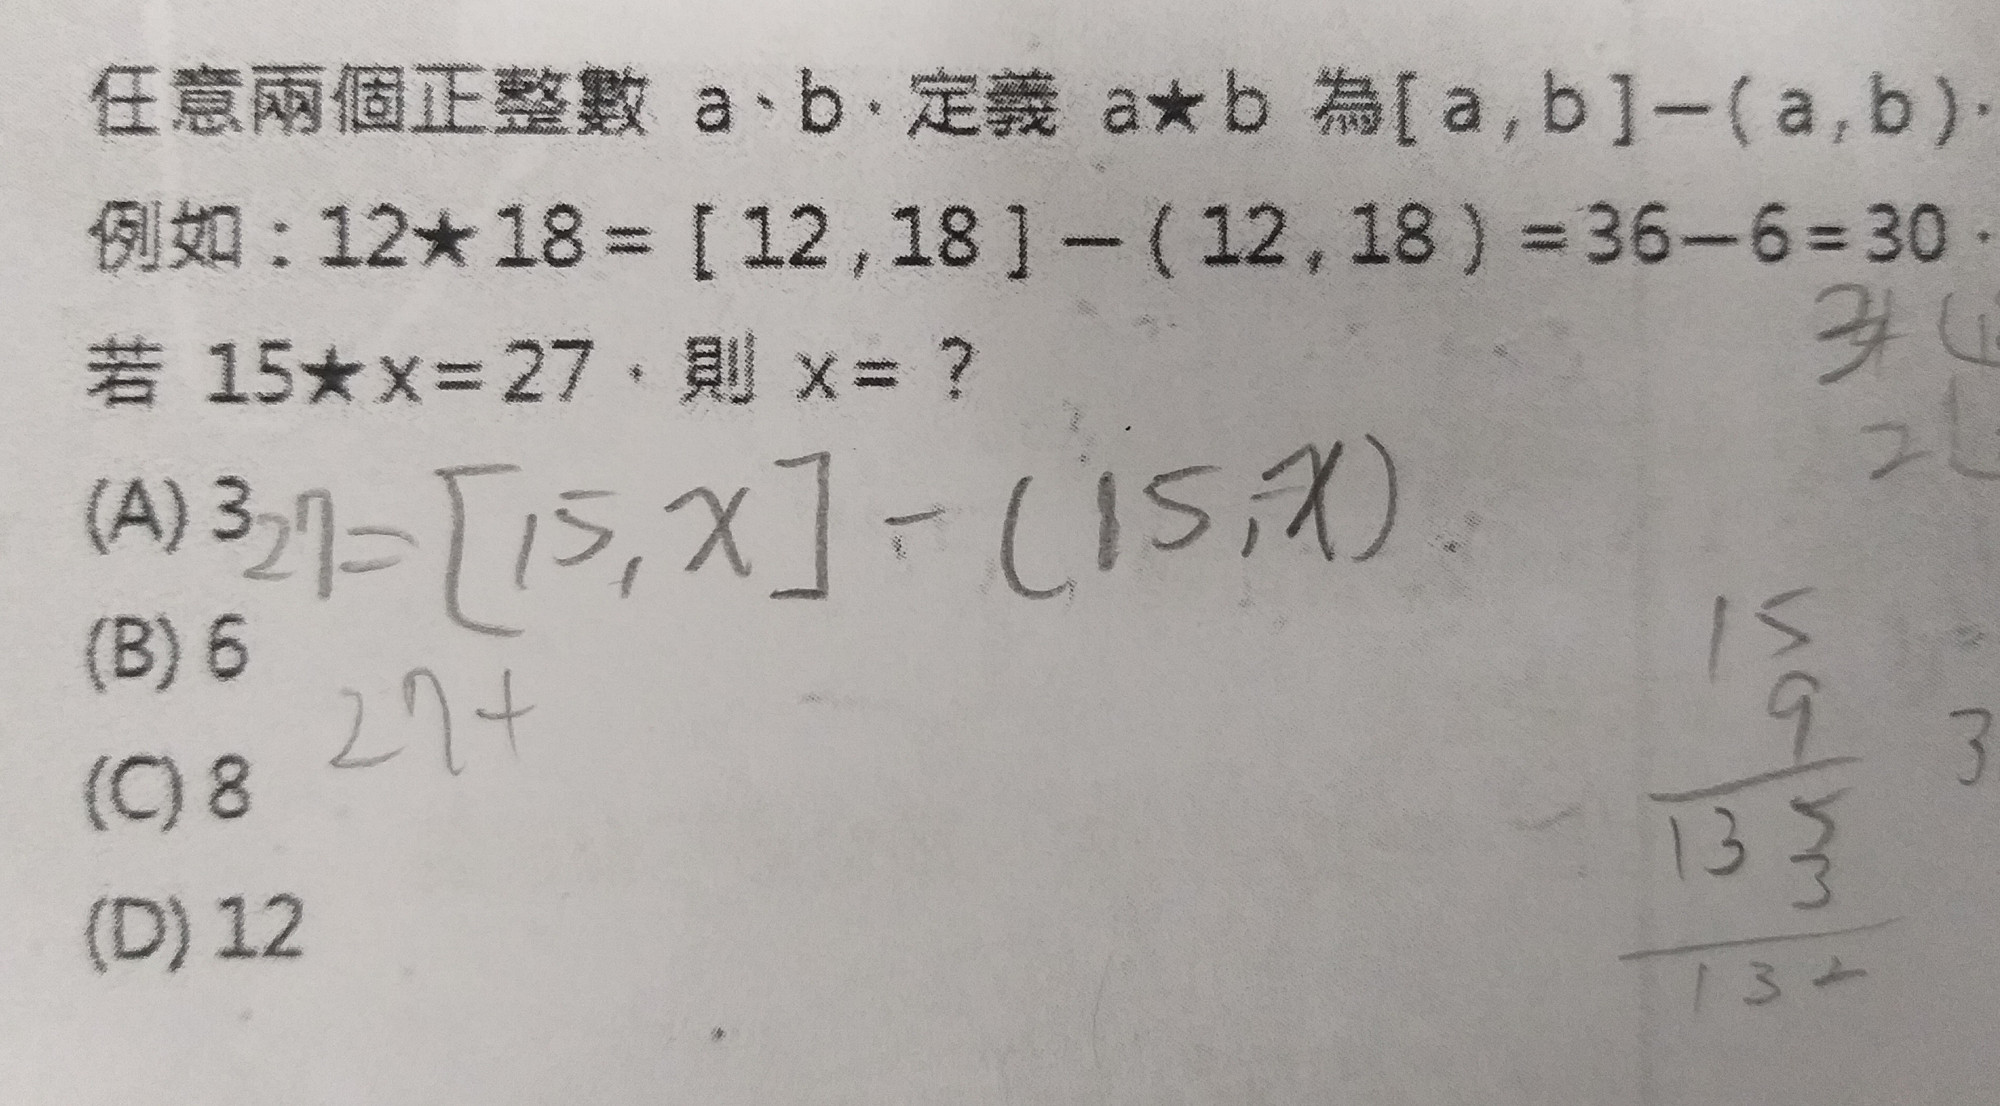 任意兩個正整數 a、b，定義 a★b 為[a,b]－(a,b)，
例如：12★18=[12,18]－(12,18)=36－6=30，
若 15★x=27，則 x=？
(A) 3
27=[15,x]-(15,x)
(B) 6
27+
(C) 8
(D) 12
15
9
3
135
3
132